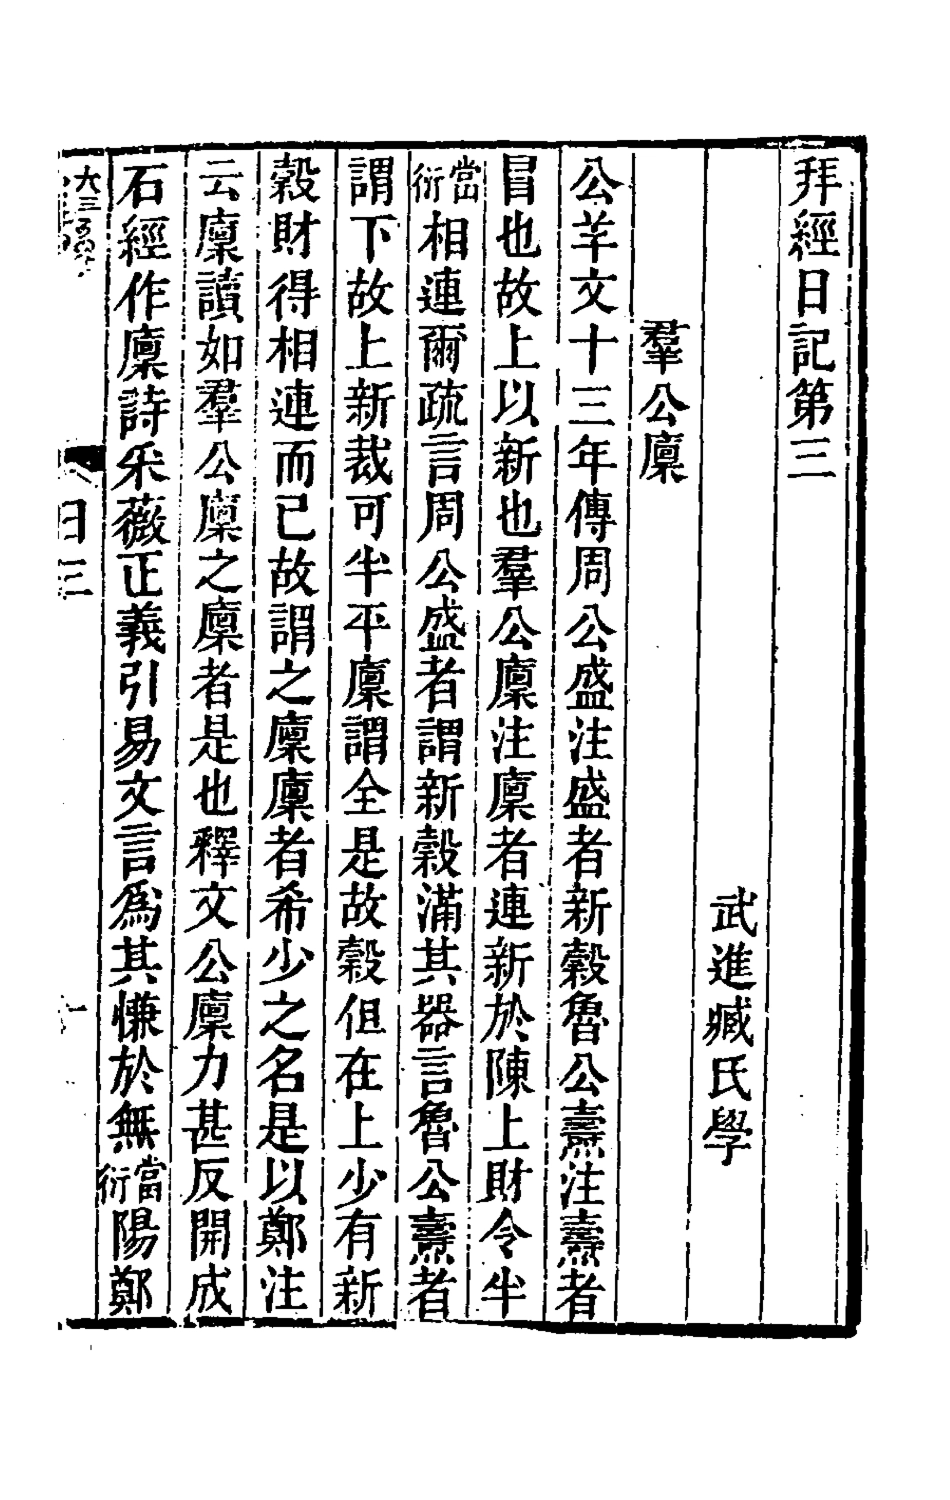 拜經日記第三
武進臧氏學
羣公廩
公羊文十三年傳周公盛注盛者新穀魯公燾注燾者
冒也故上以新也羣公廩注廩者連新於陳上財令半
相連爾疏言周公盛者謂新穀滿其器言魯公燾者
當衍
謂下故上新裁可半平廩謂全是故穀但在上少有新
穀財得相連而已故謂之廩廩者希少之名是以鄭注
云廩讀如羣公廩之廩者是也釋文公廩力甚反開成
石經作廩詩釆薇正義引易文言爲其慊於無陽鄭
當衍
日三